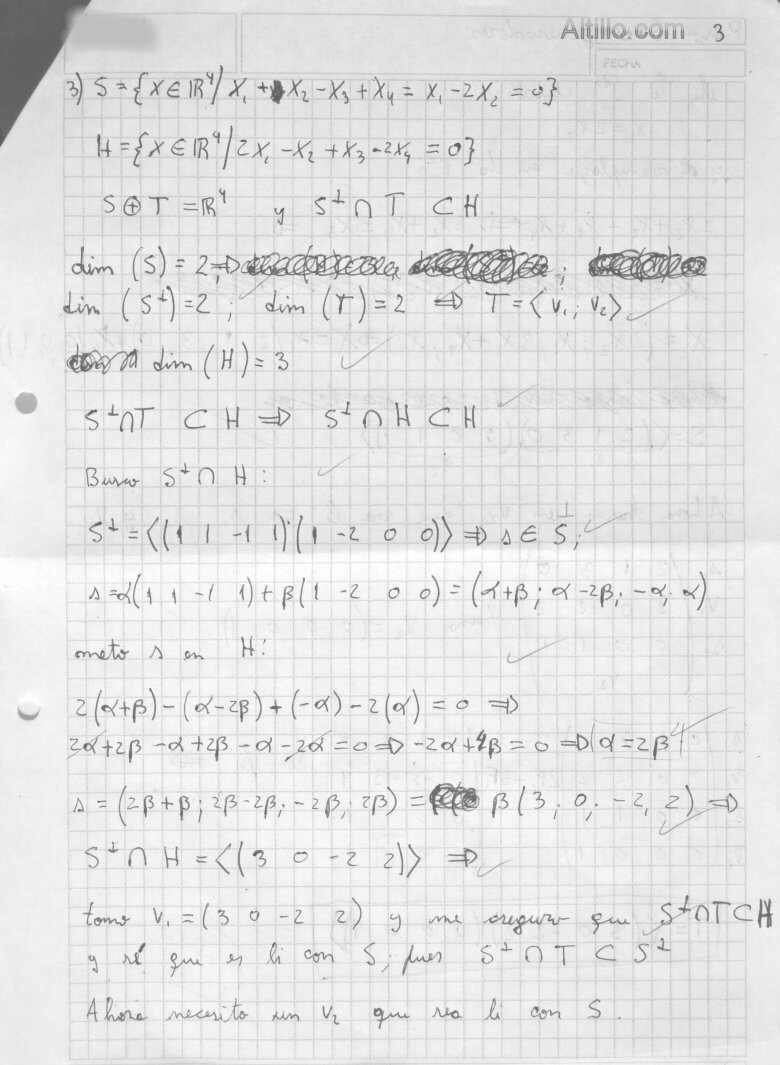 Altillo.com 3
FECHA
3) S = {X ∈ ℝ⁴ / X₁ + X₂ - X₃ + X₄ = X₁ - 2X₂ = 0}
H = {X ∈ ℝ⁴ / 2X₁ - X₂ + X₃ - 2X₄ = 0}
S ⊕ T = ℝ⁴ y S⊥ ∩ T ⊂ H
dim (S) = 2 ⇒
dim (S⊥) = 2 ; dim (T) = 2 ⇒ T = ⟨V₁ ; V₂⟩
dim (H) = 3
S⊥∩T ⊂ H ⇒ S⊥ ∩ H ⊂ H
Busco S⊥ ∩ H :
S⊥ = ⟨(1 1 -1 1) ; (1 -2 0 0)⟩ ⇒ s ∈ S⊥ ;
s = α(1 1 -1 1) + β(1 -2 0 0) = (α+β ; α-2β ; -α ; α)
meto s en H :
2(α+β) - (α-2β) + (-α) - 2(α) = 0 ⇒
2α+2β -α+2β -α -2α = 0 ⇒ -2α+4β = 0 ⇒ α = 2β
s = (2β+β ; 2β-2β ; -2β ; 2β) = β (3 ; 0 ; -2 , 2) ⇒
S⊥ ∩ H = ⟨(3 0 -2 2)⟩ ⇒
tomo V₁ = (3 0 -2 2) y me aseguro que S⊥∩T⊂H
y sé que es li con S, pues S⊥ ∩ T ⊂ S⊥
Ahora necesito un V₂ que sea li con S.